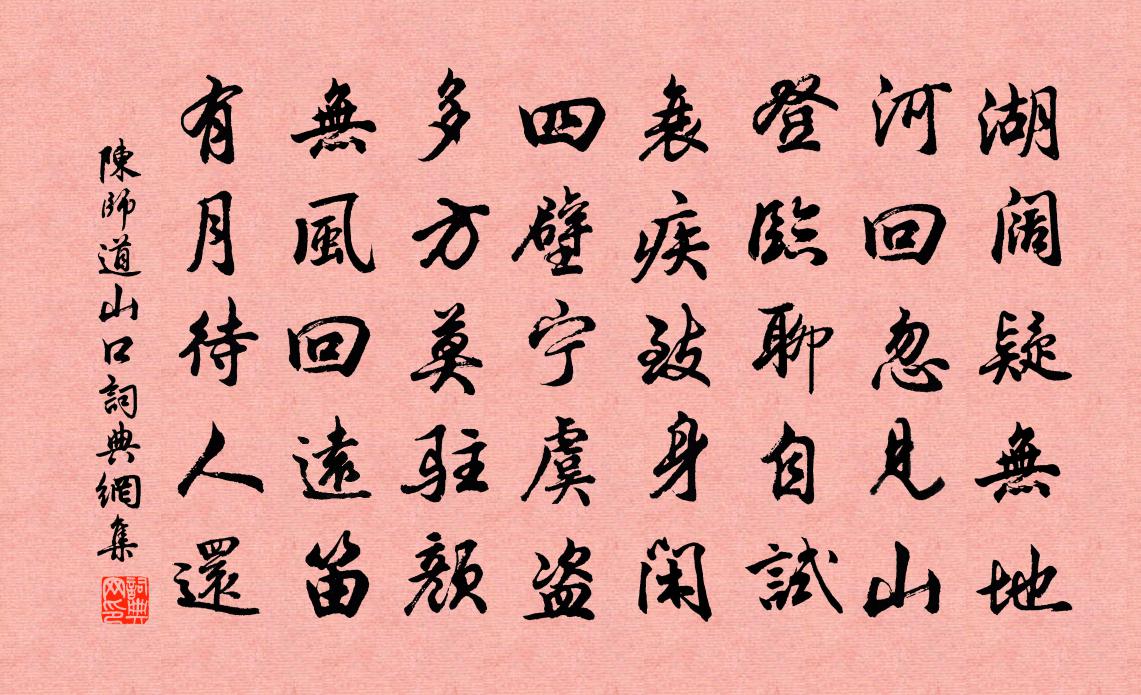 湖阔疑無地
河回忽見山
登臨聊自試
衰疾致身閑
四壁宁虞盗
多方莫駐顏
無風回遠笛
有月待人還
陳師道山口詞典網集
詞典網印